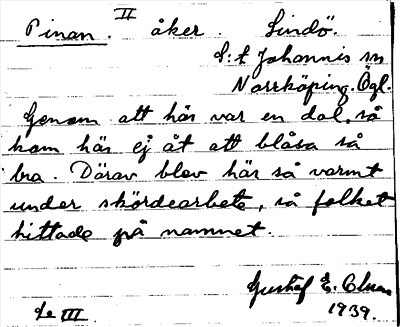 Pinan. II åker. Lindö.
S:t Johannis sn
Norrköping. Ögl.
Genom att här var en dal, så
kom här ej åt att blåsa så
bra. Därav blev här så varmt
under skördearbete, så folket
hittade på namnet.
Gustaf E. Olsson
Le III. 1939.